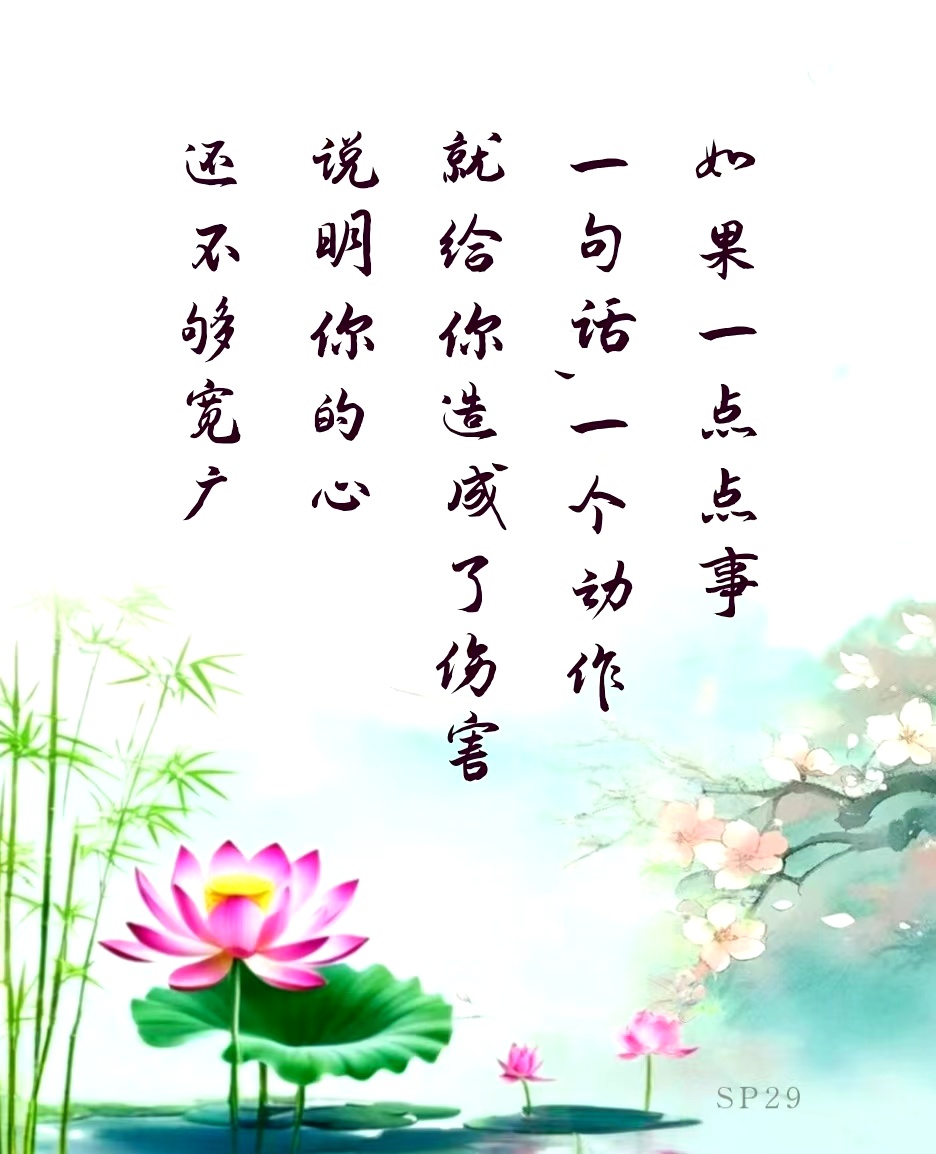 如果一点点事
一句话、一个动作
就给你造成了伤害
说明你的心
还不够宽广
SP29